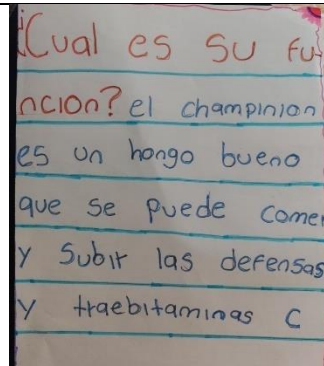 ¿Cual es su fu-
ncion? el champinion
es un hongo bueno
que se puede comer
y subir las defensas
y traebitaminas C